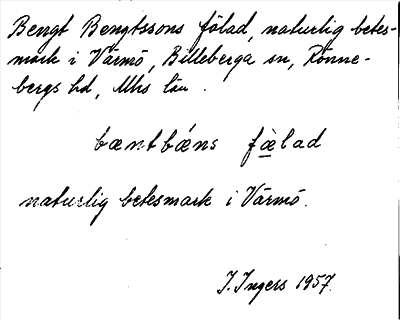 Bengt Bengtssons fölad, naturlig betes-
mark i Värmö, Billeberga sn, Rönne-
bergs hd, Mhs län.
bæntbǽns fæ̀lad
naturlig betesmark i Värmö.
I. Ingers 1957.